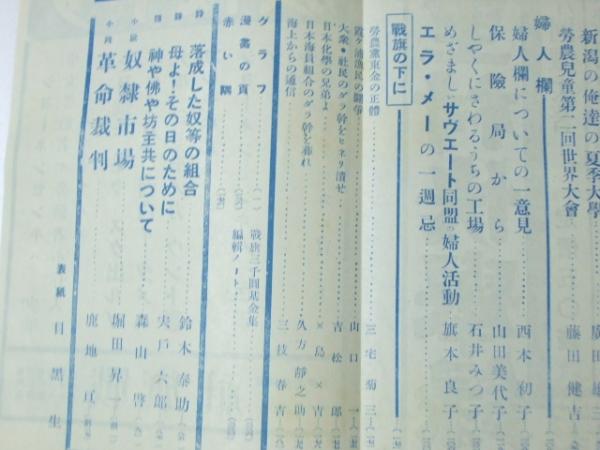 新潟の俺達の夏季大學
勞農兒童第二回世界大會 藤田健吉
婦人欄
婦人欄についての一意見 西本初子
保險局から 山田美代子
しやくにさわるうちの工場 石井みつ子
めざましいサヴエート同盟の婦人活動 旗木良子
エラ・メーの一週忌
戰旗の下に
勞農黨東金の正體 三宅菊三
霞ヶ浦漁民の鬪爭 山口一
大衆・社民のダラ幹をヒネリ潰せ 吉松郎
日本化學の兄弟よ ×島×吉
日本海員組合のダラ幹を葬れ 久方靜之助
海上からの通信 三枝春吉
グラフ (一)
漫畫の頁
赤い隅
戰旗三千圓基金集
編輯ノート
落成した奴等の組合 鈴木泰助
母よ!その日のために 宍戸六郎
神や佛や坊主共について 森山啓
奴隸市場 堀田昇一
革命裁判 鹿地亘
表紙 目黑生